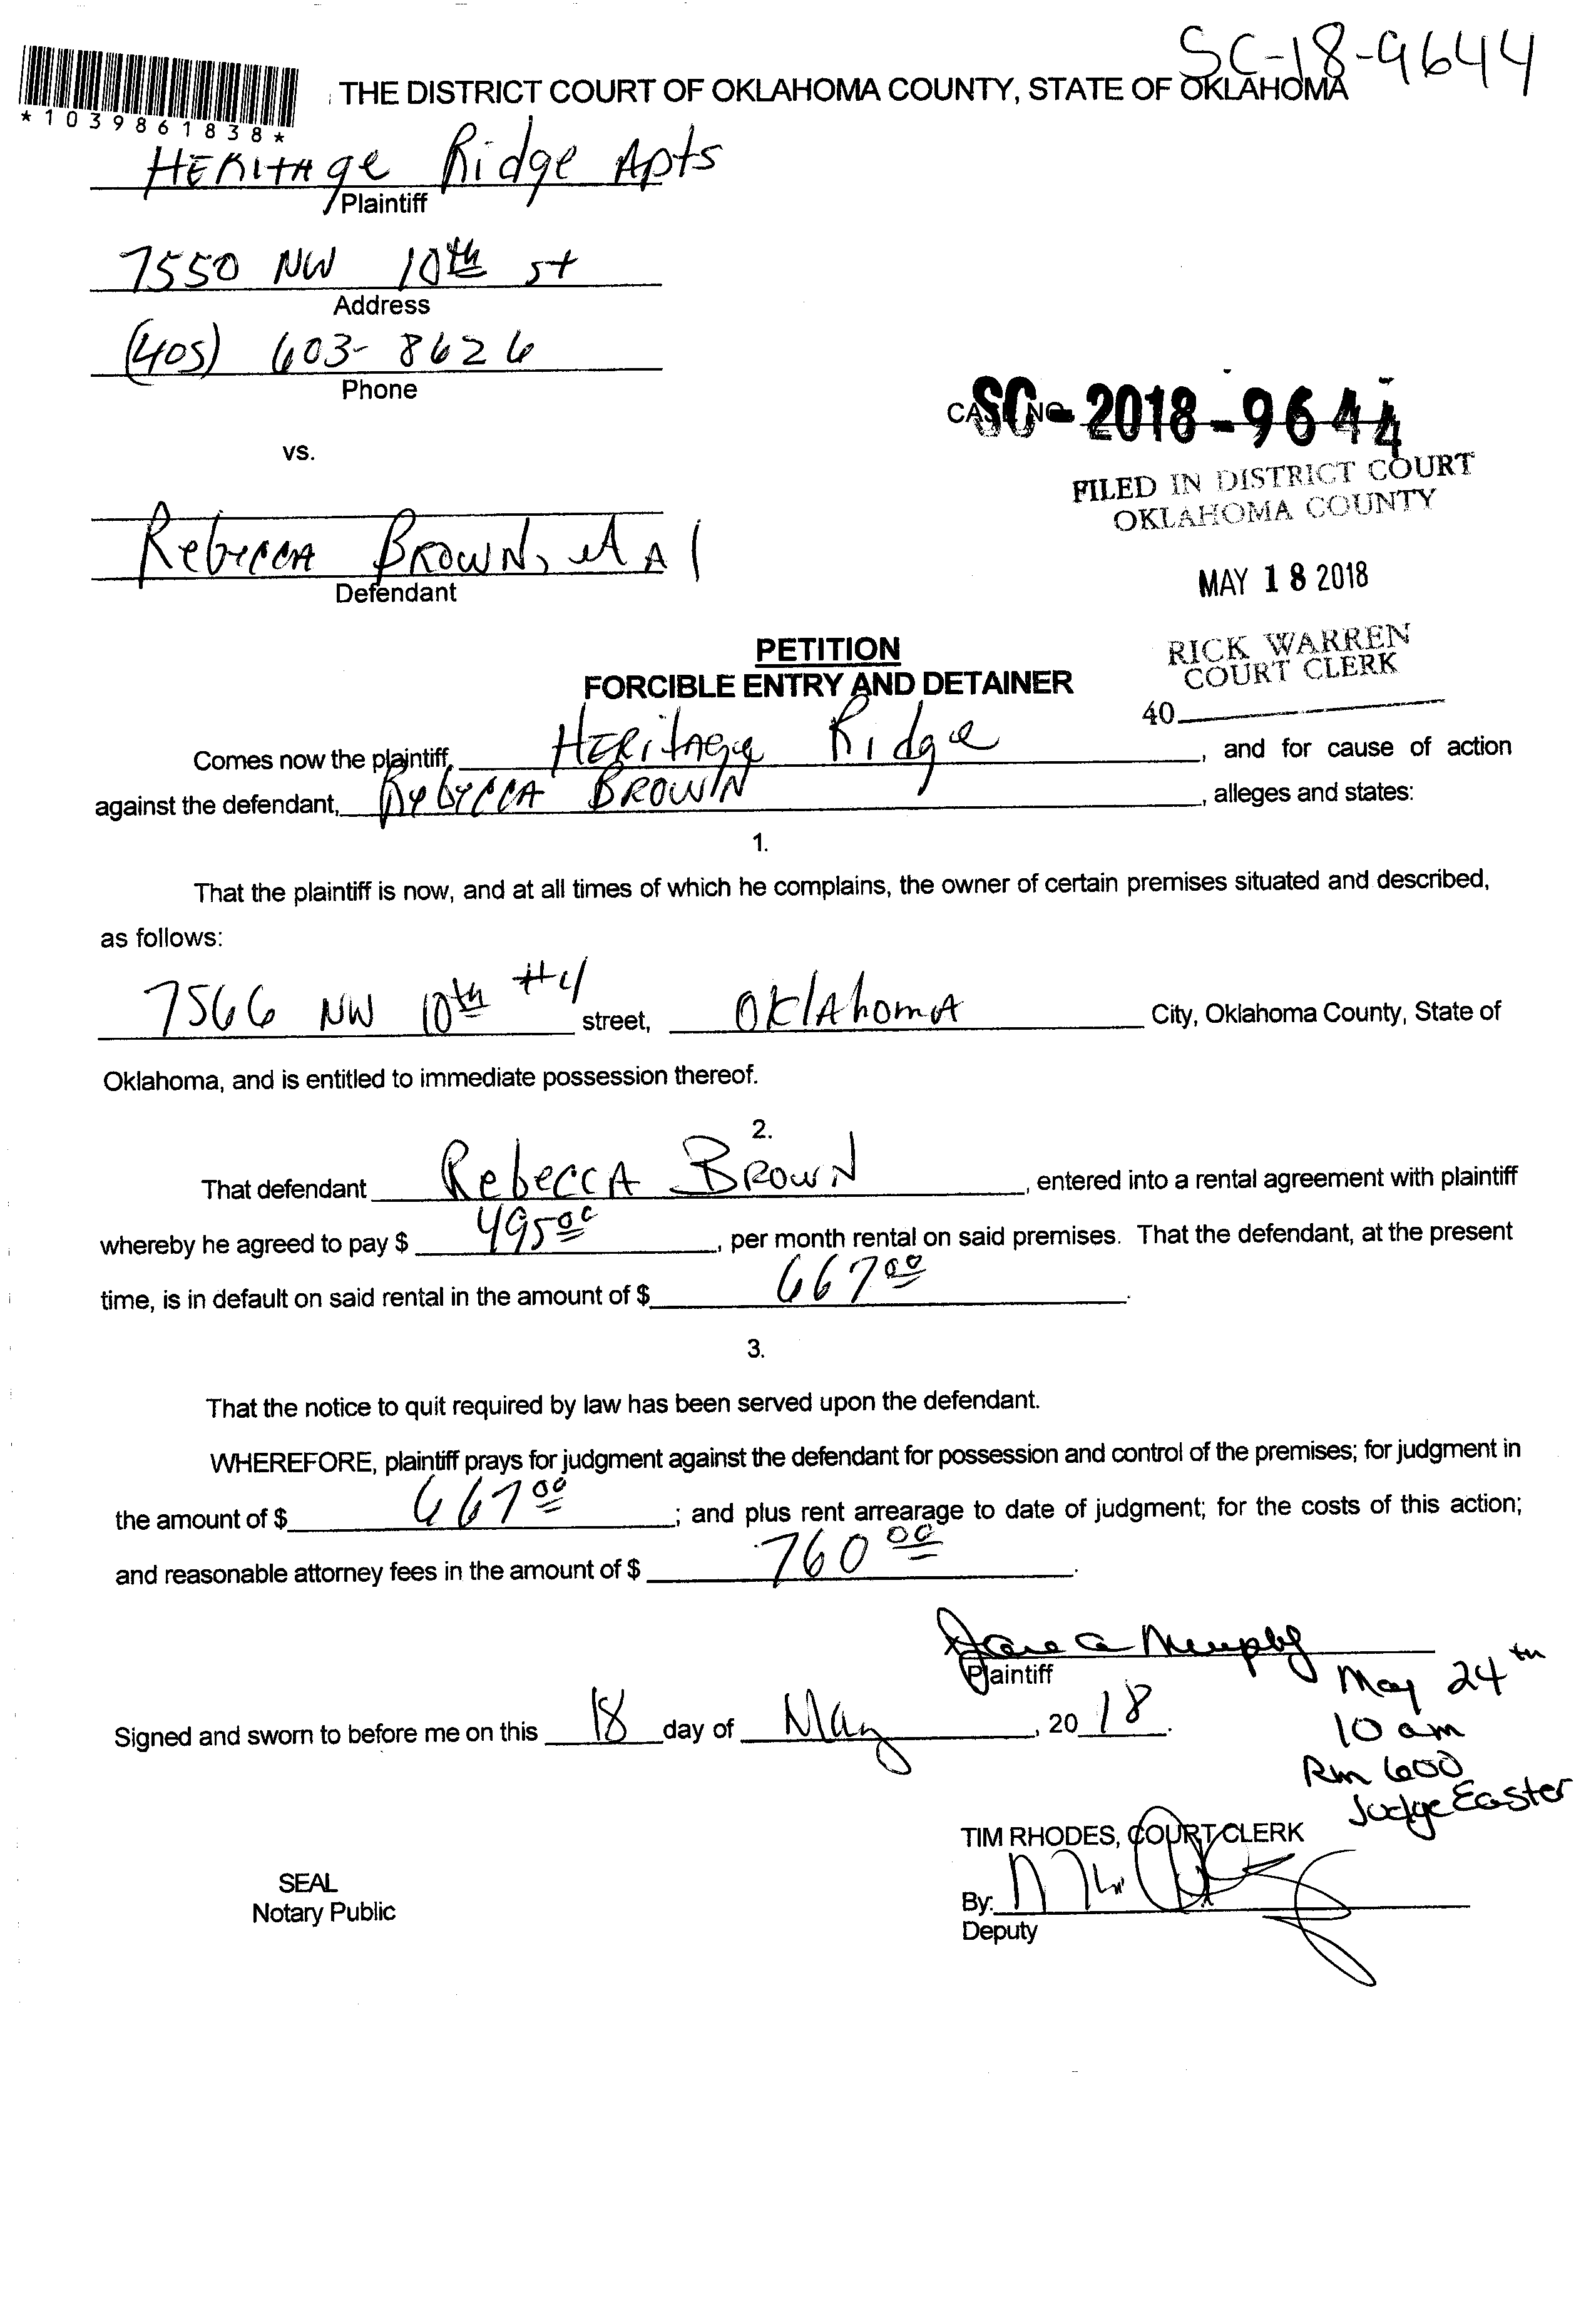 SC-18-9644
THE DISTRICT COURT OF OKLAHOMA COUNTY, STATE OF OKLAHOMA
*1039861838*
HERITAge Ridge Apts
Plaintiff
7550 NW 10th st
Address
(405) 603-8626
Phone
CASE NO.
SC-2018-9644
vs.
FILED IN DISTRICT COURT
OKLAHOMA COUNTY
Rebecca Brown, et Al
Defendant
MAY 18 2018
PETITION
FORCIBLE ENTRY AND DETAINER
RICK WARREN
COURT CLERK
40
Comes now the plaintiff, HERitAge Ridge, and for cause of action
against the defendant, Rebecca Brown, alleges and states:
1.
That the plaintiff is now, and at all times of which he complains, the owner of certain premises situated and described,
as follows:
7566 NW 10th #4 street, OklAhomA City, Oklahoma County, State of
Oklahoma, and is entitled to immediate possession thereof.
2.
That defendant RebeccA Brown, entered into a rental agreement with plaintiff
whereby he agreed to pay $ 495 00, per month rental on said premises. That the defendant, at the present
time, is in default on said rental in the amount of $ 667 00.
3.
That the notice to quit required by law has been served upon the defendant.
WHEREFORE, plaintiff prays for judgment against the defendant for possession and control of the premises; for judgment in
the amount of $ 667 00; and plus rent arrearage to date of judgment; for the costs of this action;
and reasonable attorney fees in the amount of $ 760 00.
Murphy
Plaintiff
May 24th
10 am
Rm 600
Judge Easter
Signed and sworn to before me on this 18 day of May, 20 18.
TIM RHODES, COURT CLERK
SEAL
Notary Public
By:
Deputy